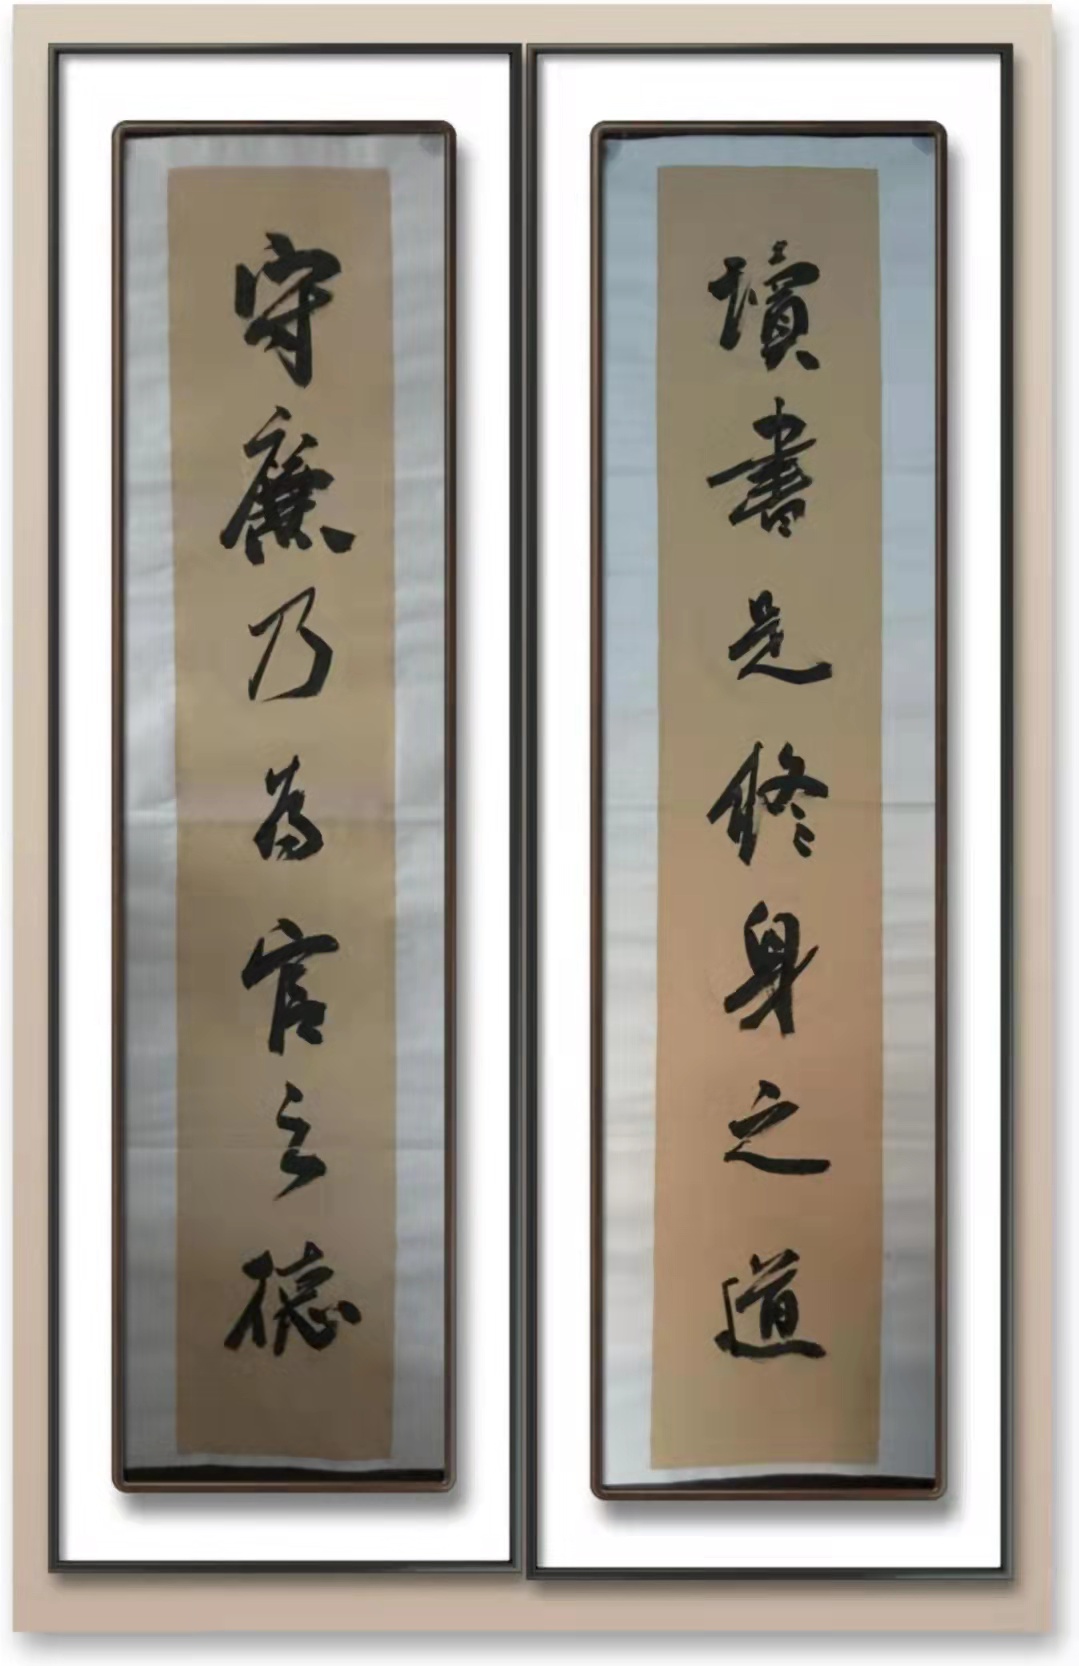 讀書是修身之道
守廉乃為官之德